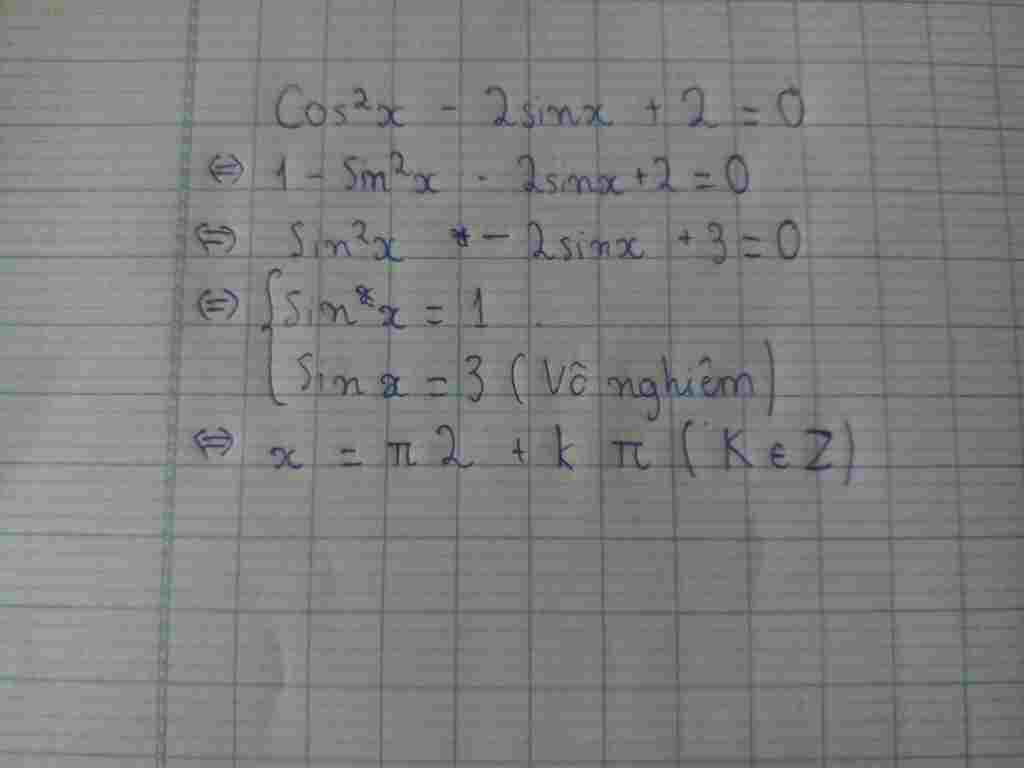 Cos²x - 2sinx + 2 = 0
⇔ 1 - Sin²x - 2sinx + 2 = 0
⇔ Sin²x - 2sinx + 3 = 0
⇔ { Sin x = 1
Sin x = 3 (Vô nghiêm)
⇔ x = π 2 + k π ( K ∈ Z)